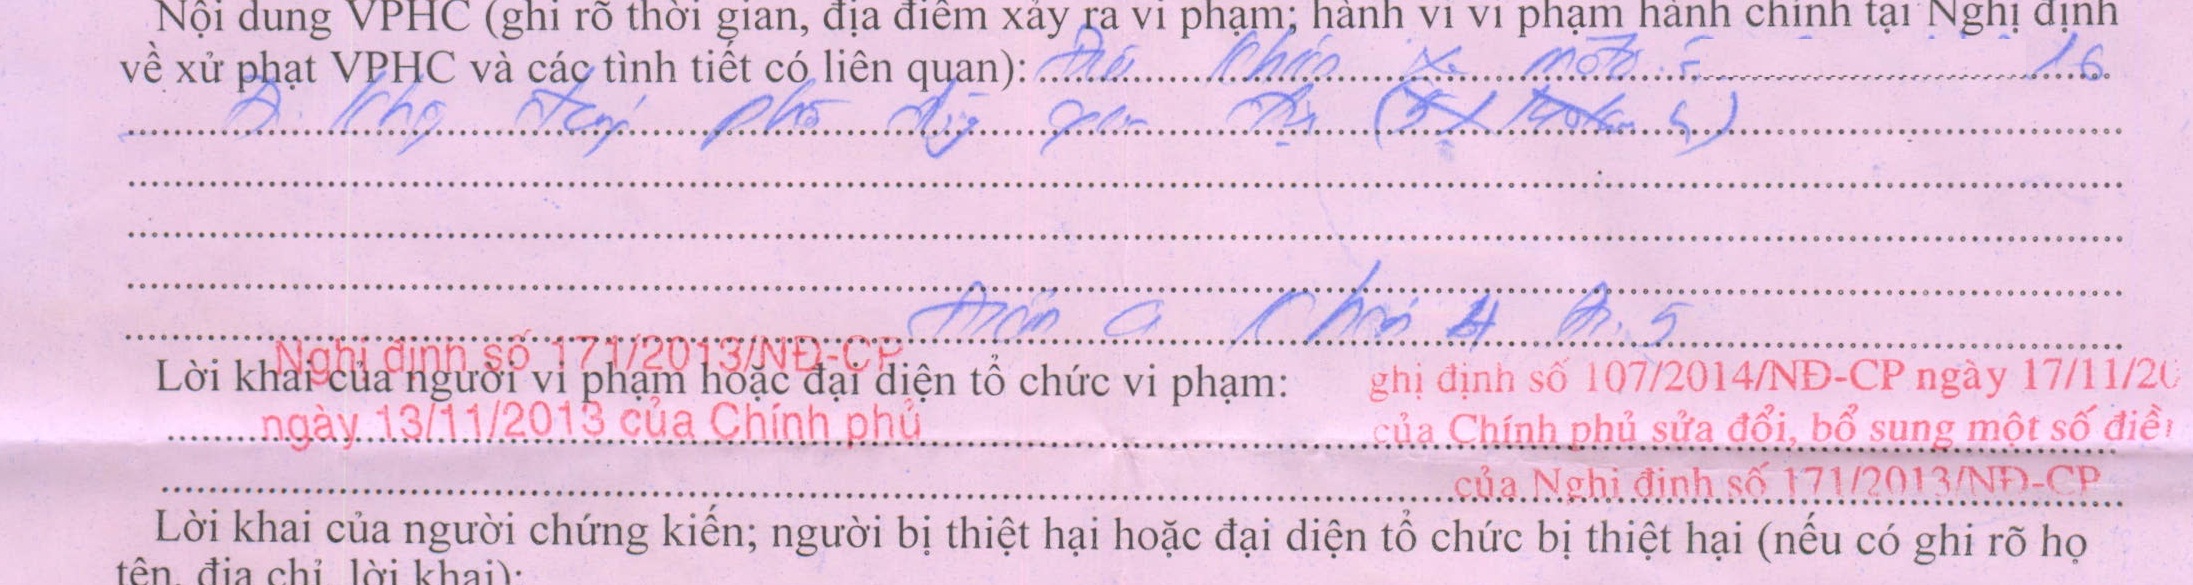 Nội dung VPHC (ghi rõ thời gian, địa điểm xảy ra vi phạm; hành vi vi phạm hành chính tại Nghị định
về xử phạt VPHC và các tình tiết có liên quan): Điều khiển xe môtô 16
Đ. khg đúng phần đg quy định
Điểm c khoản 4 Đ. 5
Nghị định số 171/2013/NĐ-CP
Lời khai của người vi phạm hoặc đại diện tổ chức vi phạm:
ghị định số 107/2014/NĐ-CP ngày 17/11/20
ngày 13/11/2013 của Chính phủ
của Chính phủ sửa đổi, bổ sung một số điề
của Nghị định số 171/2013/NĐ-CP
Lời khai của người chứng kiến; người bị thiệt hại hoặc đại diện tổ chức bị thiệt hại (nếu có ghi rõ họ
tên, địa chỉ, lời khai):